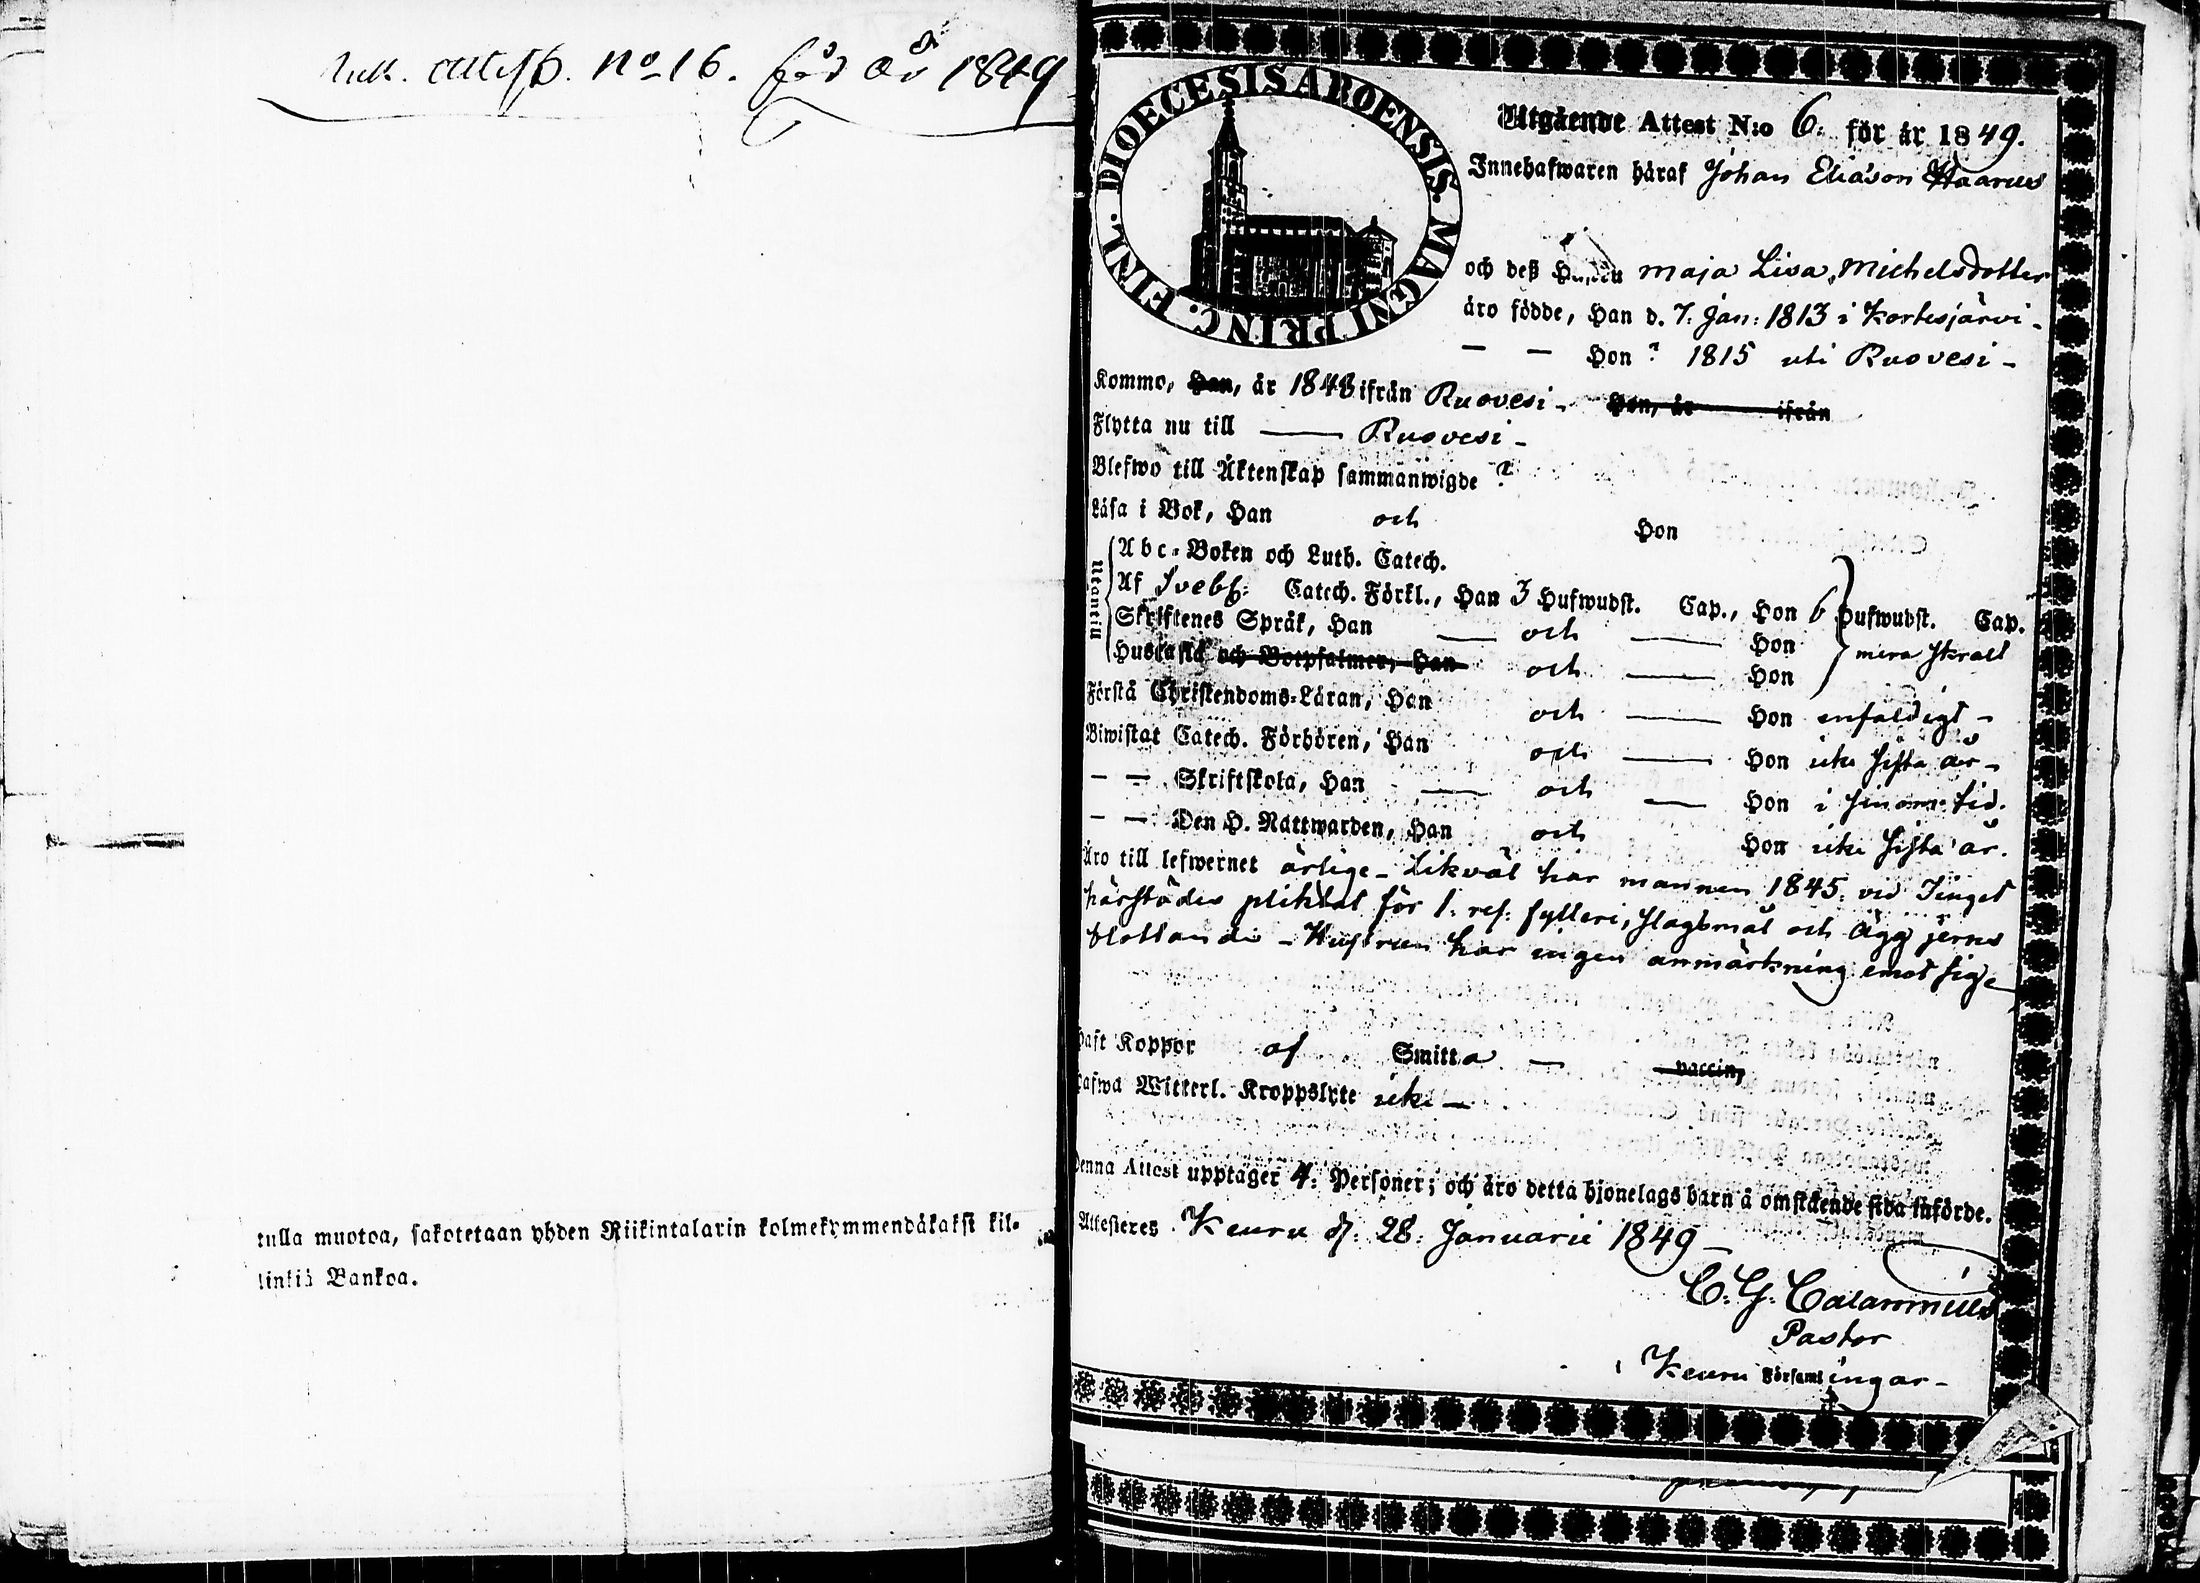 Ink. attest. No 16. för år 1849
tulla muotoa, sakotetaan yhden Riikintalarin kolmekymmendäkaksi kil-
linkiä Bankoa.
DIOECESIS ABOENSIS. MAGNI PRINC. FINL.
Utgående Attest N:o 6. för år 1849.
Innehafwaren häraf Johan Eliason Haarus
och deß Hustru Maja Lisa Michelsdotter
äro födde, Han d. 7. Jan: 1813 i Kortesjärvi -
— — Hon ? 1815 uti Ruovesi -
Komne, Han, år 1848 ifrån Ruovesi - Hon, år ifrån
Flytta nu till — Ruovesi -
Blefwo till Äktenskap sammanwigde ?
Läsa i Bok, Han och Hon
Utantill
Abc-Boken och Luth. Catech.
Af Svebil: Catech. Förkl., Han 3 Hufwudst. Cap., Hon 6 Hufwudst. Cap.
Skriftenes Språk, Han — och — Hon
Hustafla och Botpsalmer, Han och — Hon
mera skralt
Förstå Christendoms-Läran, Han och — Hon enfaldigt -
Biwistat Catech. Förhören, Han och — Hon icke sista år -
— — Skriftskola, Han — och — Hon i sinom tid.
— — Den H. Nattwarden, Han och Hon icke sista år.
Äro till lefwernet ärlige - Likväl har mannen 1845 vid Tinget
härstädes pliktat för 1. res: fylleri, slagsmål och ägg jerns
blottande - Hustrun har ingen anmärkning emot sig -
Haft Koppor af Smitta — vaccin,
Hafwa Witterl. Kroppslyte icke —
Denna Attest upptager 4: Personer; och äro detta hjonelags barn å omstående sida införde.
Attesteres Keuru d: 28: Januarii 1849 -
C. G. Calamnius
Pastor
i Keuru Församlingar -